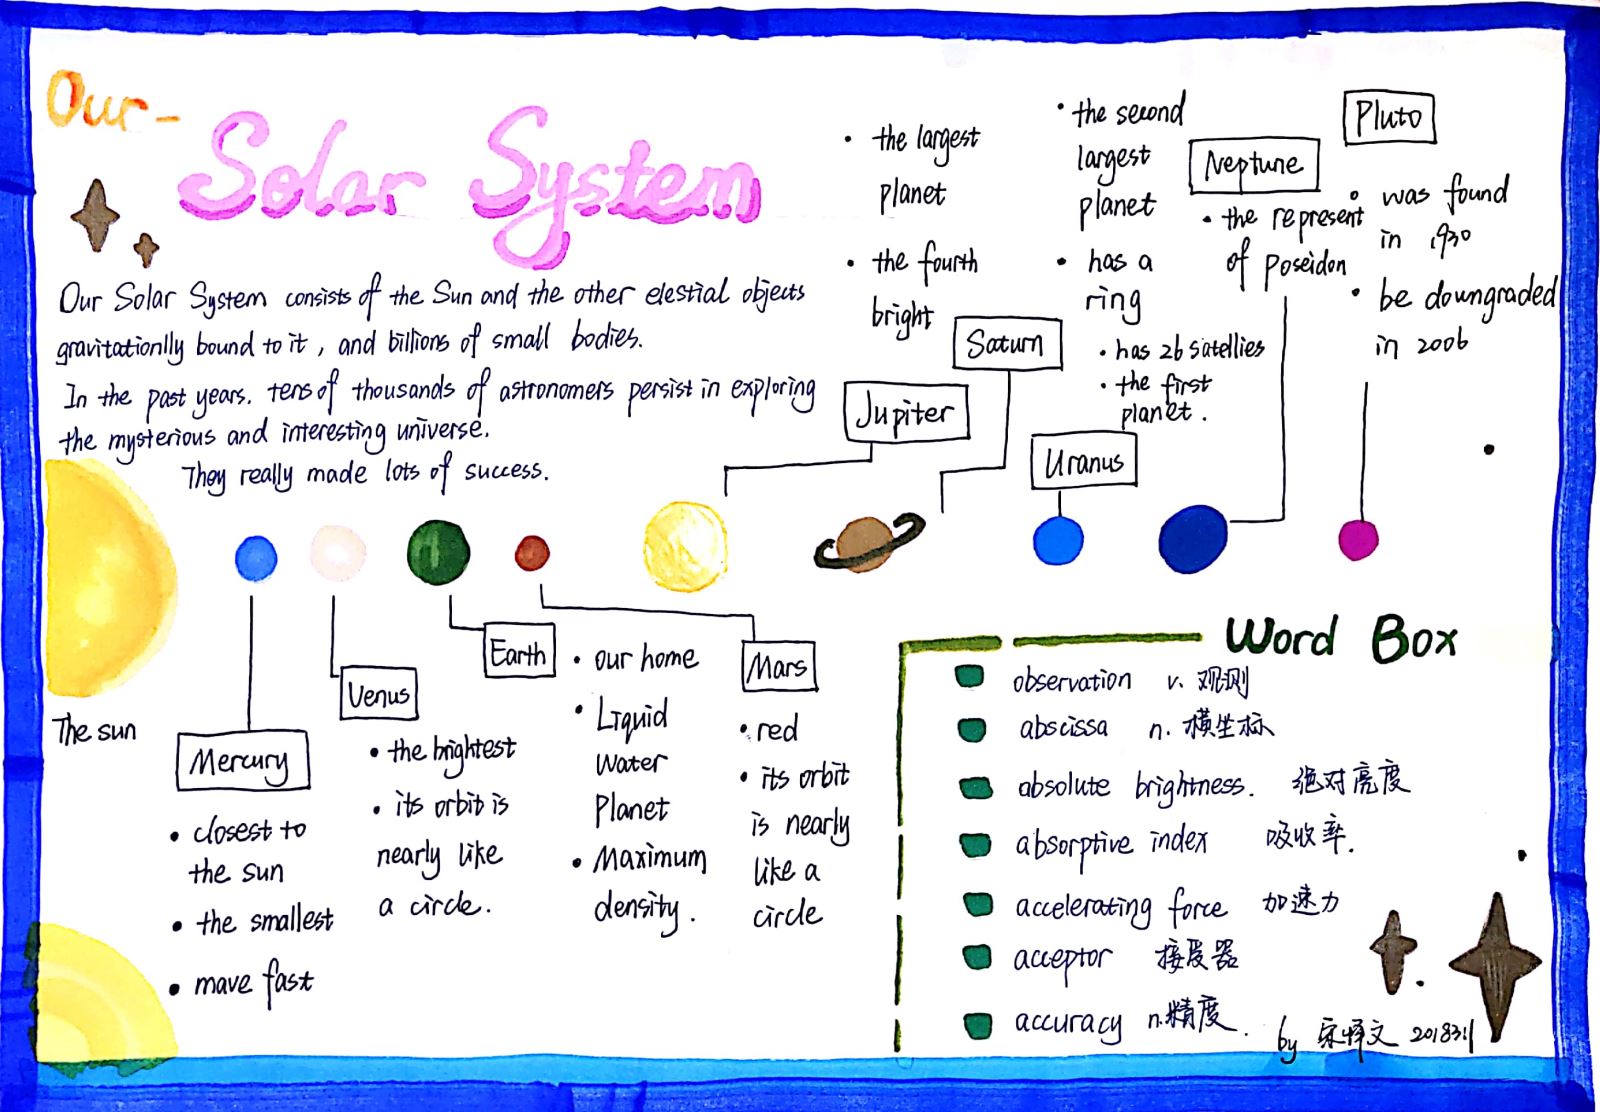 Our-
Solar System
Our Solar System consists of the Sun and the other elestial objects
gravitationlly bound to it , and billions of small bodies.
In the past years. tens of thousands of astronomers persist in exploring
the mysterious and interesting universe.
They really made lots of success.
The sun
Mercury
• closest to
the sun
• the smallest
• mave fast
Venus
• the brightest
• its orbit is
nearly like
a circle.
Earth
• our home
• Liquid
Water
Planet
• Maximum
density.
Mars
• red
• its orbit
is nearly
like a
circle
• the largest
planet
• the fourth
bright
Jupiter
• the second
largest
planet
• has a
ring
Saturn
• has 26 satellies
• the first
planet.
Uranus
Neptune
• the represent
of Poseidon
Pluto
• was found
in 1930
• be downgraded
in 2006
Word Box
observation v. 观测
abscissa n. 横坐标
absolute brightness. 绝对亮度
absorptive index 吸收率.
accelerating force 加速力
acceptor 接受器
accuracy n.精度.
by 宋怿文 2018311